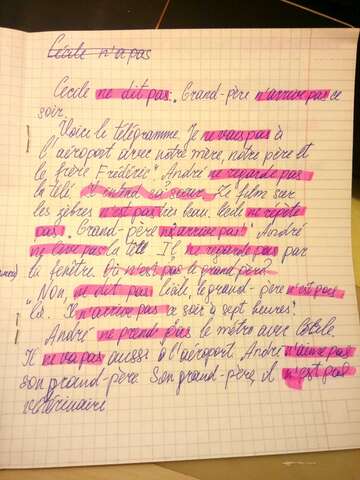 Cécile n'a pas
Cecile ne dit pas: „Grand-père n'arrive pas ce
soir.
Voici le télégramme. Je ne vais pas à
l'aéroport avec notre mère, notre père et
le frère Frédéric" André ne regarde pas
la télé. Il entend sa sœur. Le film sur
les zèbres n'est pas très beau. Cécile ne répète
pas „Grand-père n'arrive pas!" André
ne lève pas la tête. Il ne regarde pas par
la fenêtre. Où n'est pas le grand-père?
"Non, ne dit pas Cécile, le grand-père n'est pas
là. Il n'arrive pas ce soir à sept heures!
André ne prend pas le métro avec Cécile.
Il ne va pas aussi à l'aéroport. André n'aime pas
son grand-père. Son grand-père, il n'est pas
vétérinaire